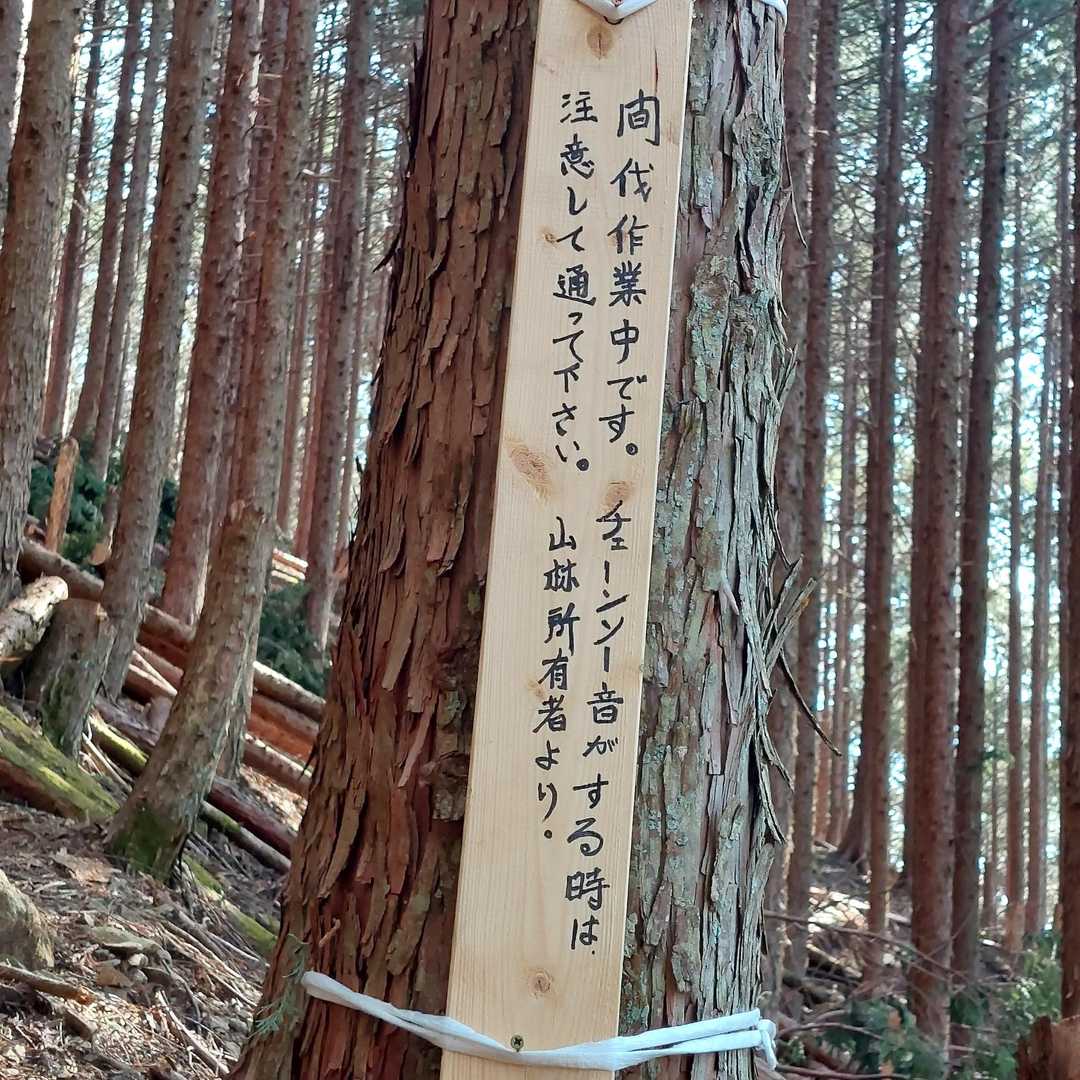 間伐作業中です。チェーンソー音がする時は
注意して通って下さい。 山林所有者より.